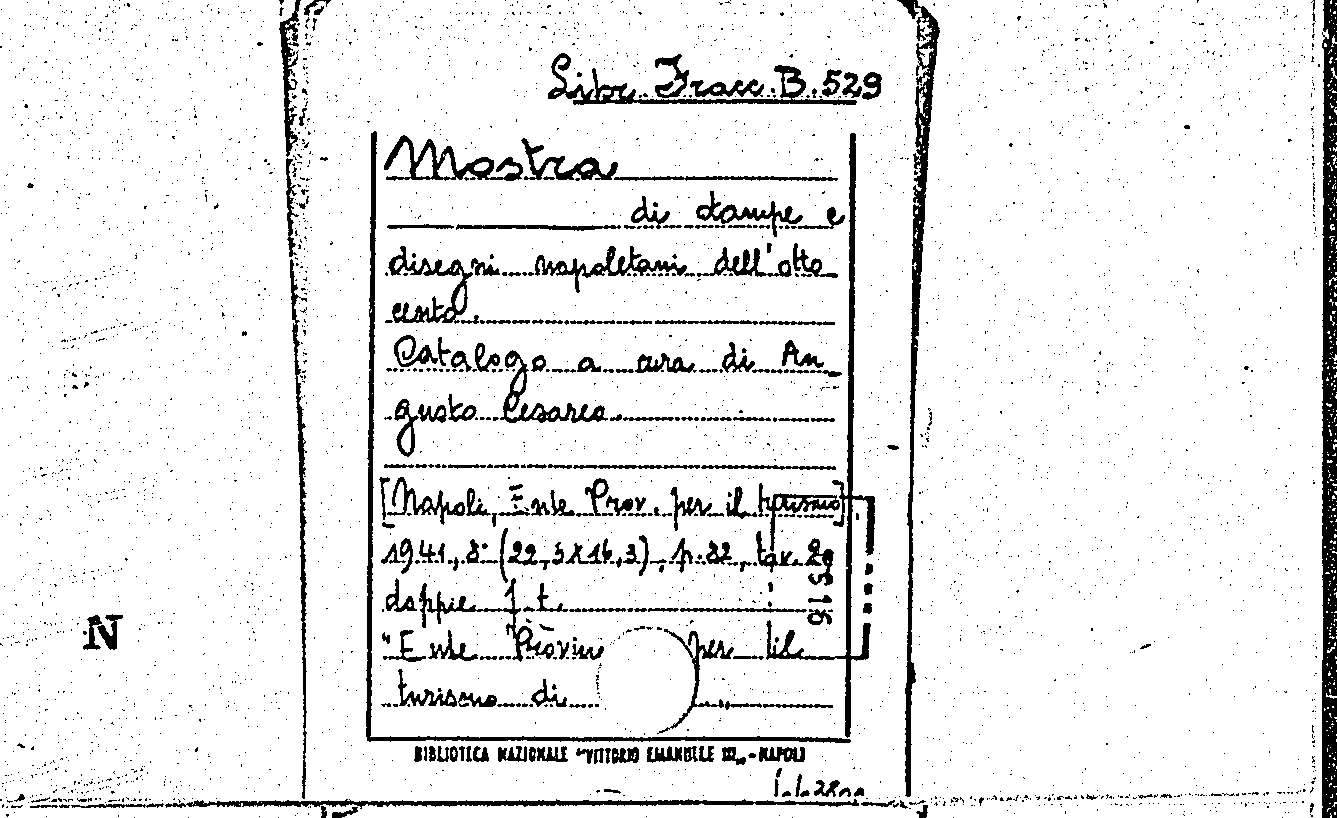 Libr. Fracc. B. 529
Mostra
di stampe e
disegni napoletani dell'otto
cento.
Catalogo a cura di Au_
gusto Cesareo.
[Napoli, Ente Prov. per il turismo]
1941, 8° (22,5x16,3), p. 82, tav. 29
doppie f. t.
"Ente Provin per il
turismo di „
BIBLIOTECA NAZIONALE "VITTORIO EMANUELE III„ - NAPOLI
N